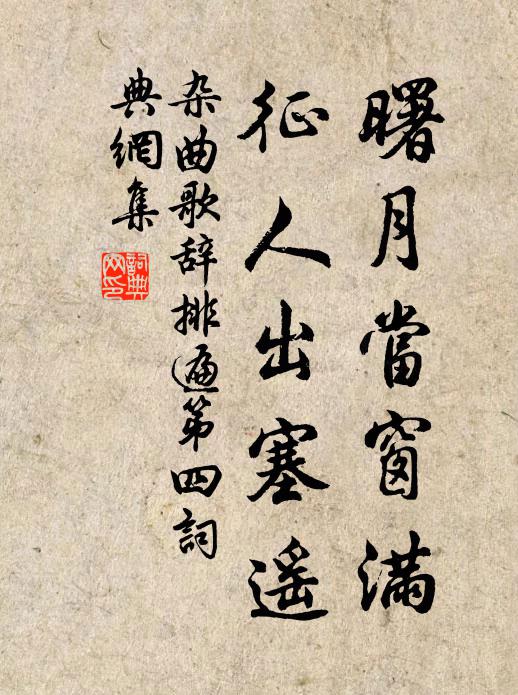 曙月當窗滿
征人出塞遥
杂曲歌辞排遍第四詞
典網集
詞典
网印